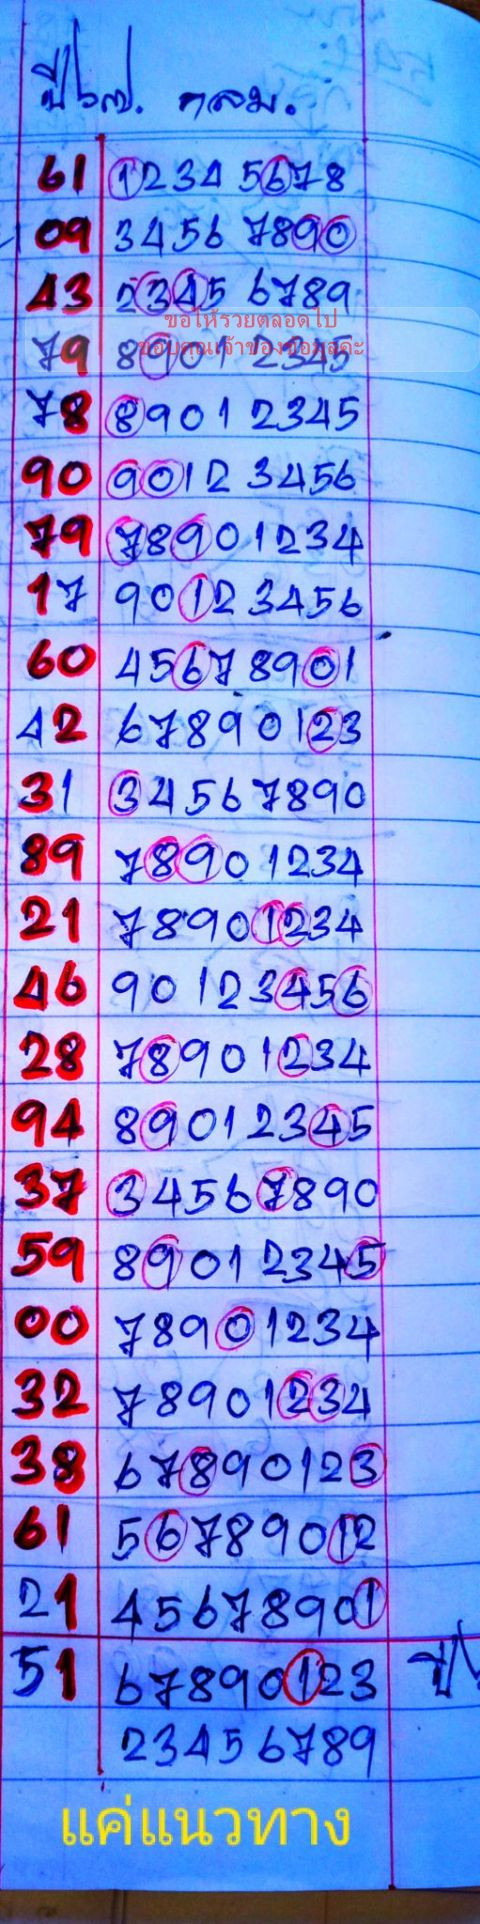 ปี๖๗. กลม.
61 12345678
09 34567890
43 23456789
ขอให้รวยตลอดไป
79 89012345
ขอบคุณเจ้าของข้อมูลคะ
78 89012345
90 90123456
79 78901234
17 90123456
60 45678901
42 67890123
31 34567890
89 78901234
21 78901234
46 90123456
28 78901234
94 89012345
37 34567890
59 89012345
00 78901234
32 78901234
38 67890123
61 56789012
21 45678901
51 67890123
23456789
แค่แนวทาง